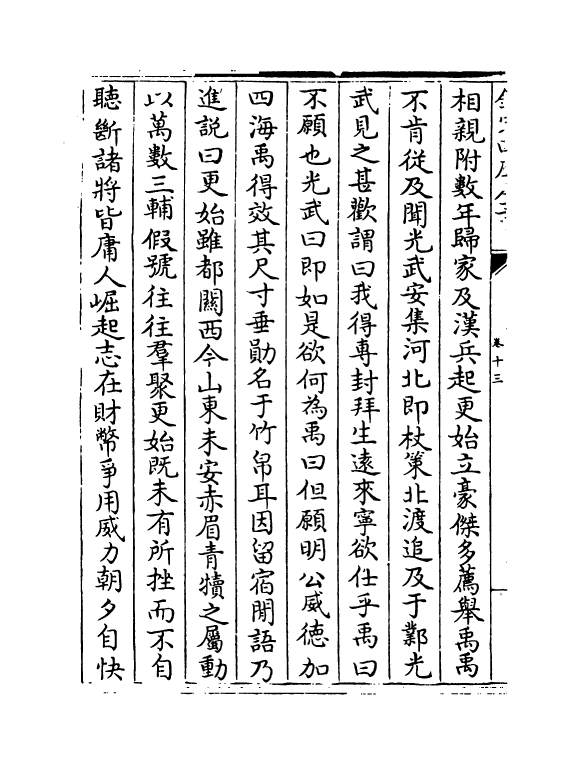 卷十三
相親附數年歸家及漢兵起更始立豪傑多薦舉禹禹
不肯從及聞光武安集河北即杖策北渡追及于鄴光
武見之甚歡謂曰我得專封拜生遠來寧欲仕乎禹曰
不願也光武曰即如是欲何為禹曰但願明公威德加
四海禹得效其尺寸垂勛名于竹帛耳因留宿閒語乃
進說曰更始雖都關西今山東未安赤眉青犢之屬動
以萬數三輔假號往往羣聚更始既未有所挫而不自
聽斷諸將皆庸人崛起志在財幣爭用威力朝夕自快